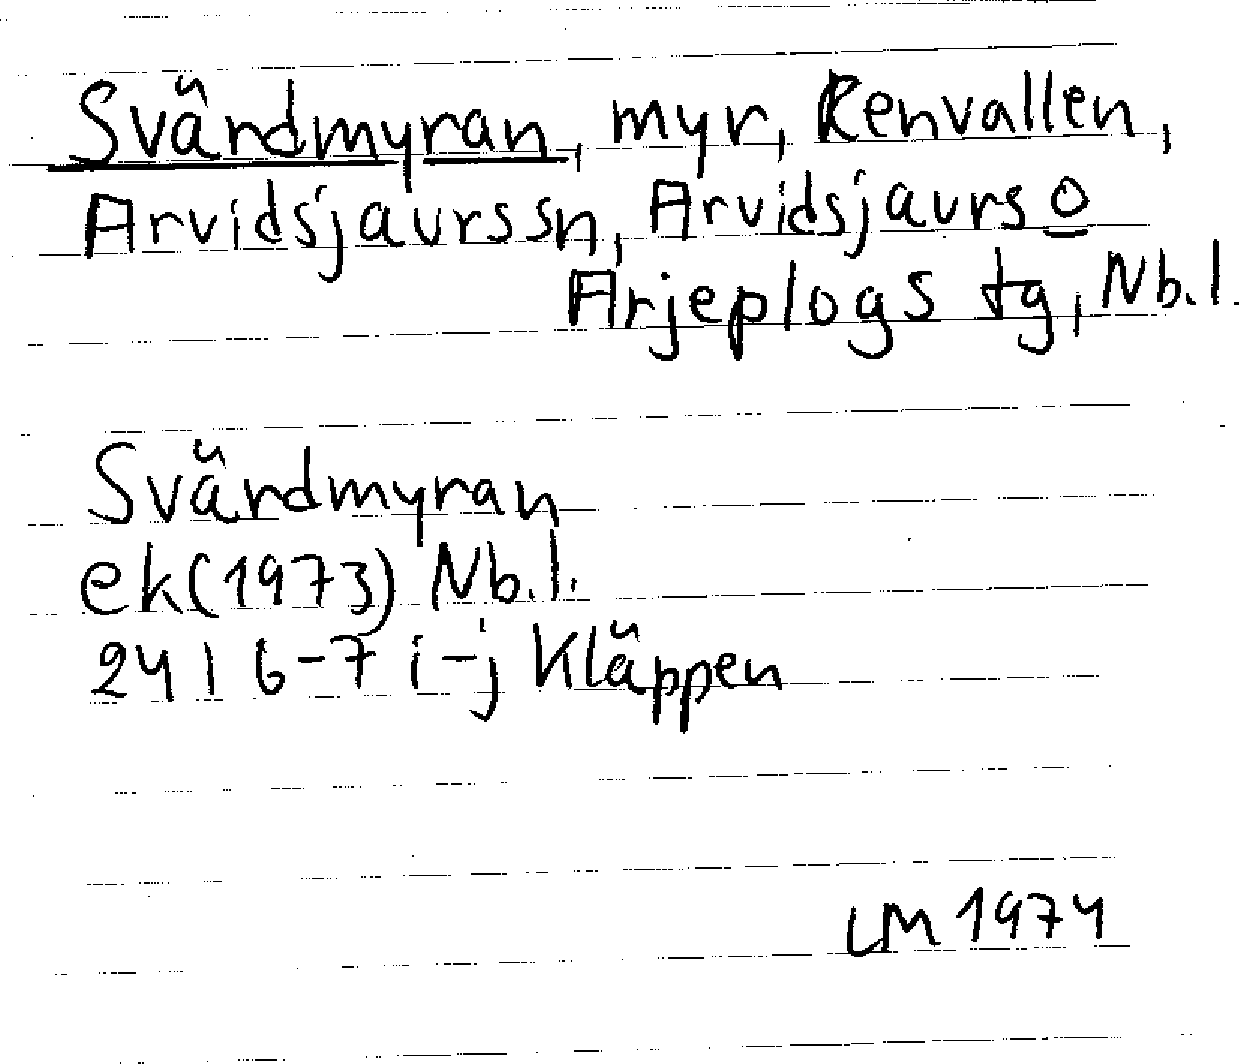 Svärdmyran, myr, Renvallen,
Arvidsjaurssn, Arvidsjaurs o
Arjeplogs tg, Nb.l.
Svärdmyran
ek(1973) Nb.l.
24 I 6-7 i-j Kläppen
LM 1974